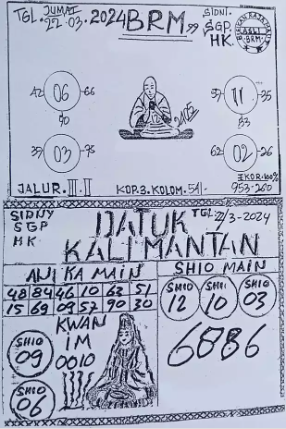 TGL. JUMAT
22-03.2024 BRM 99
SIDNI.
SGP.
HK.
ASLI
BRM
42 06 66
90
57 11 35
83
39 03 95
62 02 26
EKOR:100%
JALUR.III.II KOP.3.KOLOM.54. 953-260
SIDNY
SGP
HK
DATUK
KALIMANTAN
TGL 22/3-2024
ANGKA MAIN
48 84 46 10 63 51
15 69 09 57 90 30
SHIO MAIN
SHIO
12
SHIO
10
SHIO
03
SHIO
09
KWAN
IM
0010
SHIO
06
6886